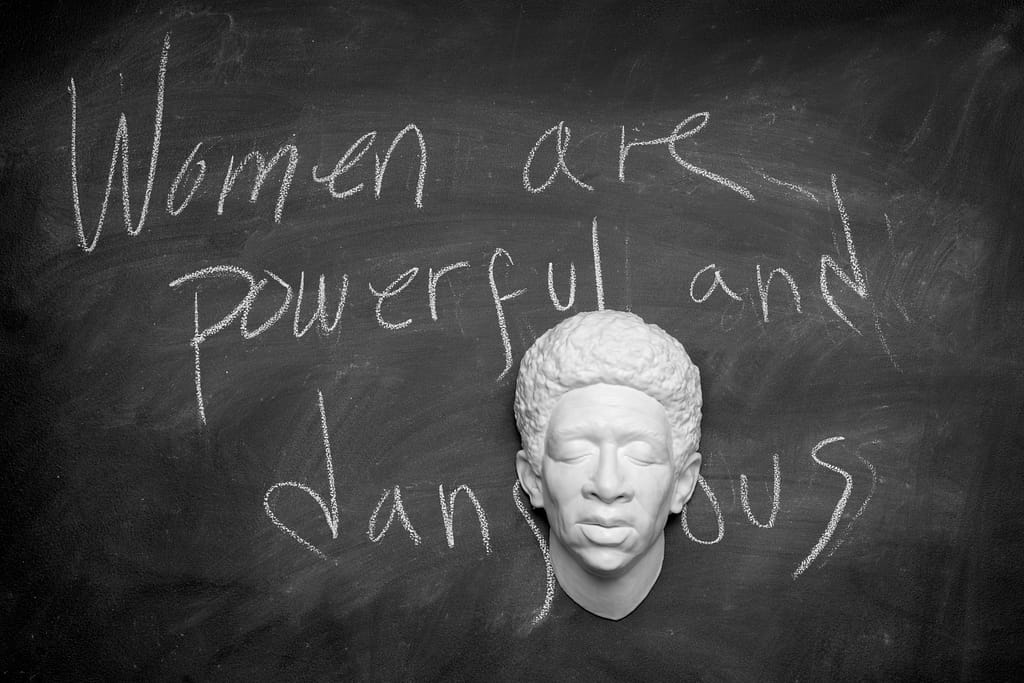 Women are
powerful and
dang ous